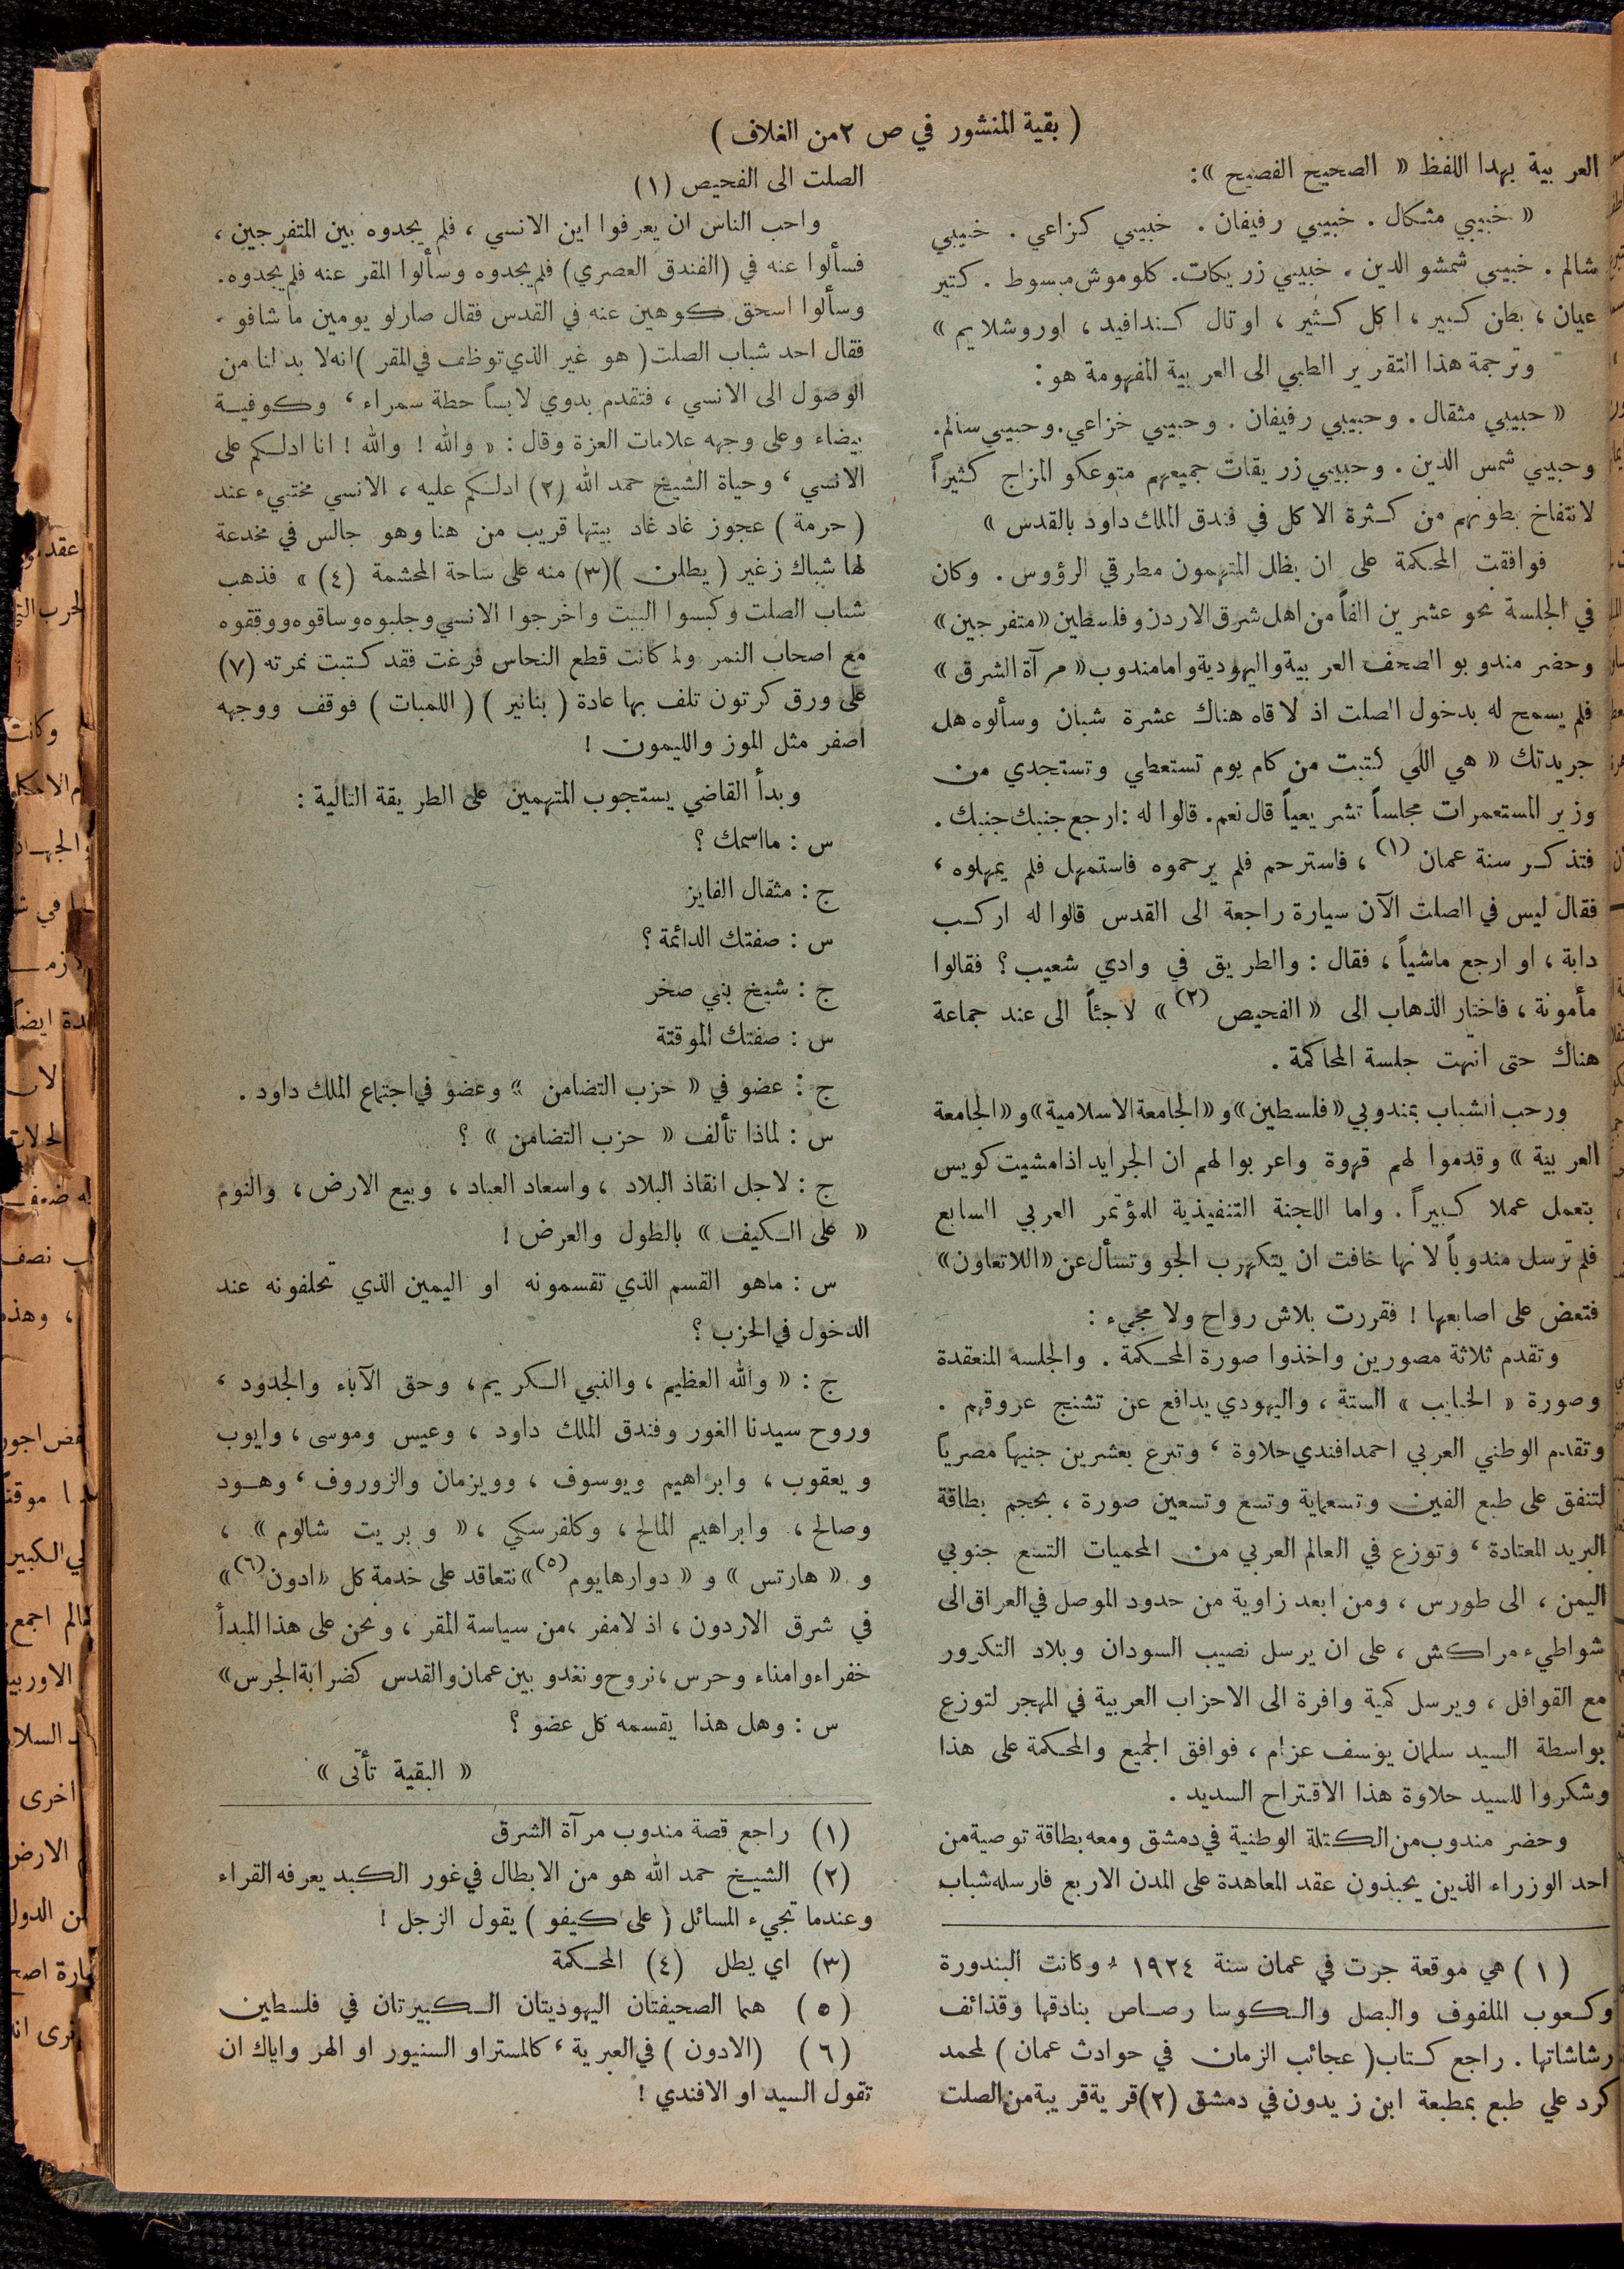 ( بقية المنشور في ص ٢ من الغلاف )
العربية بهذا اللفظ « الصحيح الفصيح »:
« خبيبي مثكال . خبيبي رفيفان . خبيبي كزاعي . خبيبي
شالم . خبيبي شمشو الدين . خبيبي زريكات. كلو موش مبسوط . كتير
عيان ، بطن كبير ، اكل كثير ، اوتال كندافيد ، اوروشلايم »
وترجمة هذا التقرير الطبي الى العربية المفهومة هو :
« حبيبي مثقال . وحبيبي رفيفان . وحبيبي خزاعي . وحبيبي سالم .
وحبيبي شمس الدين . وحبيبي زريقات جميعهم متوعكو المزاج كثيراً
لانتفاخ بطونهم من كثرة الاكل في فندق الملك داود بالقدس »
فوافقت المحكمة على ان يظل المتهمون مطرقي الرؤوس . وكان
في الجلسة نحو عشرين الفاً من اهل شرق الاردن وفلسطين « متفرجين »
وحضر مندوبو الصحف العربية واليهودية واما مندوب « مرآة الشرق »
فلم يسمح له بدخول الصلت اذ لاقاه هناك عشرة شبان وسألوه هل
جريدتك « هي اللي كتبت من كام يوم تستعطي وتستجدي من
وزير المستعمرات مجلساً تشريعياً قال نعم. قالوا له : ارجع جنبك جنبك .
فتذكر سنة عمان (١) ، فاسترحم فلم يرحموه فاستمهل فلم يمهلوه ،
فقال ليس في الصلت الآن سيارة راجعة الى القدس قالوا له اركب
دابة ، او ارجع ماشياً ، فقال : والطريق في وادي شعيب ؟ فقالوا
مأمونة ، فاختار الذهاب الى « الفحيص (٢) » لاجئاً الى عند جماعة
هناك حتى انتهت جلسة المحاكمة .
ورحب الشباب بمندوبي « فلسطين » و « الجامعة الاسلامية » و « الجامعة
العربية » وقدموا لهم قهوة واعربوا لهم ان الجرايد اذا مشيت كويس
بتعمل عملا كبيراً . واما اللجنة التنفيذية للمؤتمر العربي السابع
فلم ترسل مندوباً لانها خافت ان يتكهرب الجو وتسأل عن « اللاتعاون »
فتعض على اصابعها ! فقررت بلاش رواح ولا مجيء :
وتقدم ثلاثة مصورين واخذوا صورة المحكمة . والجلسه المنعقدة
وصورة « الخبايب » الستة ، واليهودي يدافع عن تشنج عروقهم .
وتقدم الوطني العربي احمد افندي حلاوة ، وتبرع بعشرين جنيهاً مصرياً
لتنفق على طبع الفين وتسعماية وتسع وتسعين صورة ، بحجم بطاقة
البريد المعتادة ، وتوزع في العالم العربي من المحميات التسع جنوبي
اليمن ، الى طورس ، ومن ابعد زاوية من حدود الموصل في العراق الى
شواطيء مراكش ، على ان يرسل نصيب السودان وبلاد التكرور
مع القوافل ، ويرسل كمية وافرة الى الاحزاب العربية في المهجر لتوزع
بواسطة السيد سلمان يوسف عزام ، فوافق الجميع والمحكمة على هذا
وشكروا للسيد حلاوة هذا الاقتراح السديد .
وحضر مندوب من الكتلة الوطنية في دمشق ومعه بطاقة توصية من
احد الوزراء الذين يحبذون عقد المعاهدة على المدن الاربع فارسله شباب
( ١ ) هي موقعة جرت في عمان سنة ١٩٢٤ ، وكانت البندورة
وكعوب الملفوف والبصل والكوسا رصاص بنادقها وقذائف
رشاشاتها . راجع كتاب ( عجائب الزمان في حوادث عمان ) لمحمد
كرد علي طبع بمطبعة ابن زيدون في دمشق (٢) قرية قريبة من الصلت
الصلت الى الفحيص (١)
واحب الناس ان يعرفوا اين الانسي ، فلم يجدوه بين المتفرجين ،
فسألوا عنه في (الفندق العصري) فلم يجدوه وسألوا المقر عنه فلم يجدوه .
وسألوا اسحق كوهين عنه في القدس فقال صارلو يومين ما شافو .
فقال احد شباب الصلت ( هو غير الذي توظف في المقر ) انه لا بد لنا من
الوصول الى الانسي ، فتقدم بدوي لابساً حطة سمراء ، وكوفية
بيضاء وعلى وجهه علامات العزة وقال : « والله ! والله ! انا ادلكم على
الانسي ، وحياة الشيخ حمد الله (٢) ادلكم عليه ، الانسي مختبيء عند
( حرمة ) عجوز غاد غاد بيتها قريب من هنا وهو جالس في مخدعة
لها شباك زغير ( يطلن ) (٣) منه على ساحة المحشمة (٤) » فذهب
شباب الصلت وكبسوا البيت واخرجوا الانسي وجلبوه وساقوه ووقفوه
مع اصحاب النمر ولما كانت قطع النحاس فرغت فقد كتبت نمرته (٧)
على ورق كرتون تلف بها عادة ( بنانير ) ( اللمبات ) فوقف ووجهه
اصفر مثل الموز والليمون !
وبدأ القاضي يستجوب المتهمين على الطريقة التالية :
س : ما اسمك ؟
ج : مثقال الفايز
س : صفتك الدائمة ؟
ج : شيخ بني صخر
س : صفتك الموقتة
ج : عضو في « حزب التضامن » وعضو في اجتماع الملك داود .
س : لماذا تألف « حزب التضامن » ؟
ج : لاجل انقاذ البلاد ، واسعاد العباد ، وبيع الارض ، والنوم
« على الكيف » بالطول والعرض !
س : ماهو القسم الذي تقسمونه او اليمين الذي تحلفونه عند
الدخول في الحزب ؟
ج : « والله العظيم ، والنبي الكريم ، وحق الآباء والجدود ،
وروح سيدنا الغور وفندق الملك داود ، وعيس وموسى ، وايوب
ويعقوب ، وابراهيم ويوسوف ، وويزمان والزوروف ، وهود
وصالح ، وابراهيم المالح ، وكلفرسكي ، « وبريت شالوم » ،
و « هارتس » و « دوارهايوم (٥) » نتعاقد على خدمة كل « ادون (٦) »
في شرق الاردون ، اذ لامفر ، من سياسة المقر ، ونحن على هذا المبدأ
خفراء وامناء وحرس ، نروح ونغدو بين عمان والقدس كضرابة الجرس »
س : وهل هذا يقسمه كل عضو ؟
« البقية تأتى »
(١) راجع قصة مندوب مرآة الشرق
(٢) الشيخ حمد الله هو من الابطال في غور الكبد يعرفه القراء
وعندما تجيء المسائل ( على كيفو ) يقول الزجل !
(٣) اي يطل (٤) المحكمة
(٥) هما الصحيفتان اليهوديتان الكبيرتان في فلسطين
(٦) (الادون ) في العبرية ، كالمستر او السنيور او الهر واياك ان
تقول السيد او الافندي !